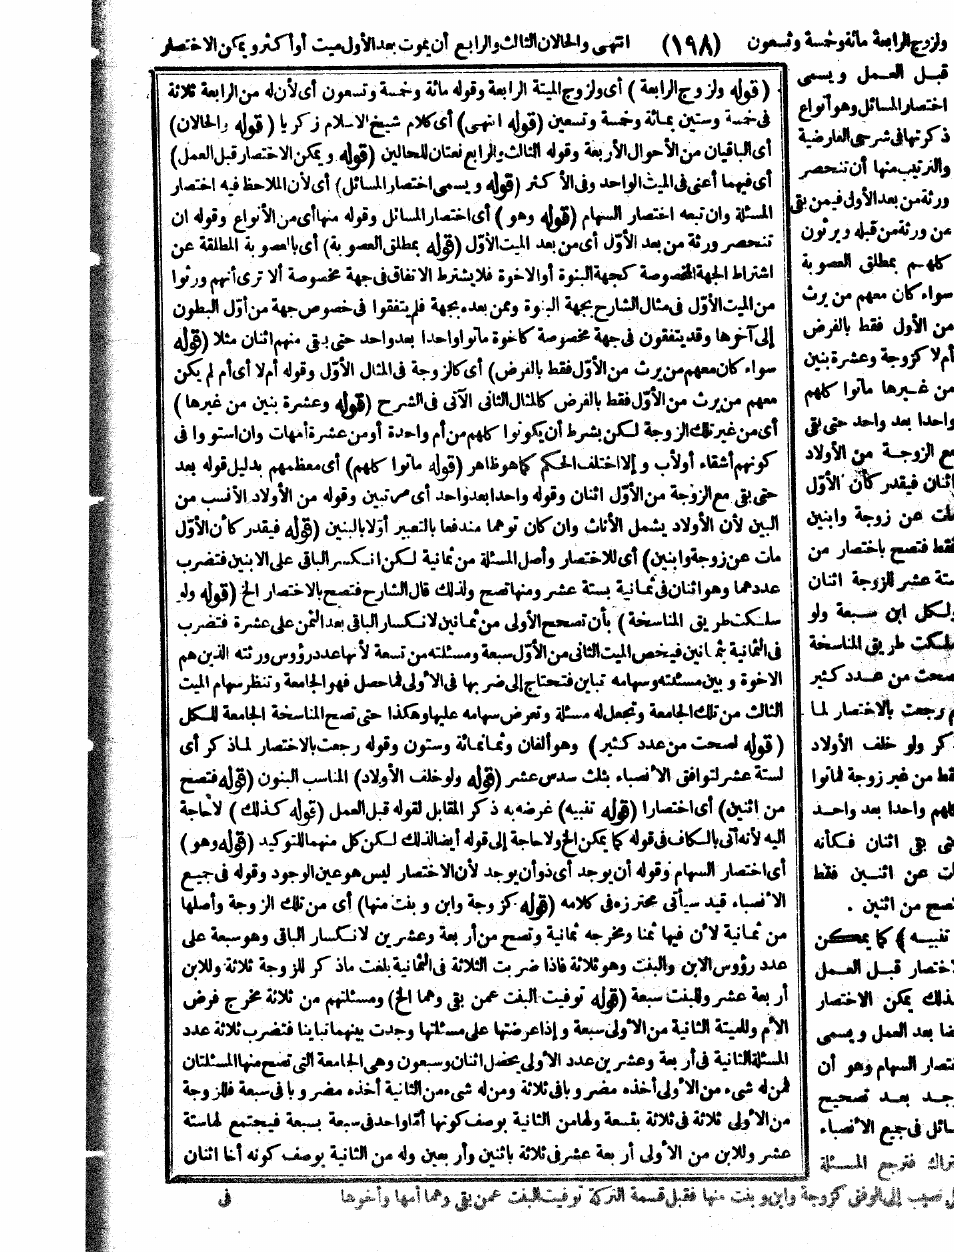 ولزوج الرابعة مائة وخمسة وتسعون (١٩٨) انتهى والحالان الثالث والرابع أن يموت بعد الأول ميت أو أكثر ويمكن الاختصار
قبل العمل ويسمى
اختصار المسائل وهو أنواع
ذكرتها فى شرحى العارضية
والترتيب منها أن تنحصر
ورثة من بعد الأول فيمن بقى
من ورثة من قبله ويرثون
كلهم بمطلق العصوبة
سواء كان معهم من يرث
من الأول فقط بالفرض
أم لا كزوجة وعشرة بنين
من غيرها ماتوا كلهم
واحدا بعد واحد حتى بقى
مع الزوجة من الأولاد
اثنان فيقدر كأن الأول
مات عن زوجة وابنين
فقط فتصح باختصار من
ستة عشر للزوجة اثنان
ولكل ابن سبعة ولو
سلكت طريق المناسخة
لصحت من عدد كثير
ثم رجعت بالاختصار لما
ذكر ولو خلف الأولاد
فقط من غير زوجة فماتوا
كلهم واحدا بعد واحد
حتى بقى اثنان فكأنه
مات عن اثنين فقط
فتصح من اثنين .
(تنبيه) كما يمكن
الاختصار قبل العمل
كذلك يمكن الاختصار
أيضا بعد العمل ويسمى
اختصار السهام وهو أن
يوجد بعد تصحيح
المسائل فى جميع الأنصباء
اشتراك فترجع المسئلة
(قوله ولزوج الرابعة) أى ولزوج الميتة الرابعة وقوله مائة وخمسة وتسعون أى لأن له من الرابعة ثلاثة
فى خمسة وستين بمائة وخمسة وتسعين (قوله انتهى) أى كلام شيخ الاسلام زكريا (قوله والحالان)
أى الباقيان من الأحوال الأربعة وقوله الثالث والرابع نعتان للحالين (قوله ويمكن الاختصار قبل العمل)
أى فيهما أعنى فى الميت الواحد وفى الأكثر (قوله ويسمى اختصار المسائل) أى لأن الملاحظ فيه اختصار
المسئلة وان تبعه اختصار السهام (قوله وهو) أى اختصار المسائل وقوله منها أى من الأنواع وقوله ان
تنحصر ورثة من بعد الأول أى من بعد الميت الأول (قوله بمطلق العصوبة) أى بالعصوبة المطلقة عن
اشتراط الجهة المخصوصة كجهة البنوة أو الاخوة فلا يشترط الاتفاق فى جهة مخصوصة ألا ترى أنهم ورثوا
من الميت الأول فى مثال الشارح بجهة البنوة وممن بعده بجهة فلم يتفقوا فى خصوص جهة من أول البطون
إلى آخرها وقد يتفقون فى جهة مخصوصة كاخوة ماتوا واحدا بعد واحد حتى بقى منهم اثنان مثلا (قوله
سواء كان معهم من يرث من الأول فقط بالفرض) أى كالزوجة فى المثال الأول وقوله أم لا أى أم لم يكن
معهم من يرث من الأول فقط بالفرض كالمثال الثانى الآتى فى الشرح (قوله وعشرة بنين من غيرها)
أى من غير تلك الزوجة لكن بشرط أن يكونوا كلهم من أم واحدة أو من عشرة أمهات وان استووا فى
كونهم أشقاء أو لأب والا اختلف الحكم كما هو ظاهر (قوله ماتوا كلهم) أى معظمهم بدليل قوله بعد
حتى بقى مع الزوجة من الأول اثنان وقوله واحدا بعد واحد أى مرتبين وقوله من الأولاد الأنسب من
البنين لأن الأولاد يشمل الأناث وان كان توهما مندفعا بالتعبير أولا بالبنين (قوله فيقدر كأن الأول
مات عن زوجة وابنين) أى للاختصار وأصل المسئلة من ثمانية لكن انكسر الباقى على الابنين فتضرب
عددهما وهو اثنان فى ثمانية بستة عشر ومنها تصح ولذلك قال الشارح فتصح بالاختصار الخ (قوله ولو
سلكت طريق المناسخة) بأن تصحح الأولى من ثمانين لانكسار الباقى بعد الثمن على عشرة فتضرب
فى الثمانية بثمانين فيخص الميت الثانى من الأول سبعة ومسئلته من تسعة لأنها عدد رؤس ورثته الذين هم
الاخوة وبين مسئلته وسهامه تباين فتحتاج إلى ضربها فى الأولى فما حصل فهو الجامعة وتنظر سهام الميت
الثالث من تلك الجامعة وتجعل له مسئلة وتعرض سهامه عليها وهكذا حتى تصح المناسخة الجامعة للكل
(قوله لصحت من عدد كثير) وهو ألفان وثمانمائة وستون وقوله رجعت بالاختصار لما ذكر أى
لستة عشر لتوافق الأنصباء بثلث سدس عشر (قوله ولو خلف الأولاد) المناسب البنون (قوله فتصح
من اثنين) أى اختصارا (قوله تنبيه) غرضه به ذكر المقابل لقوله قبل العمل (قوله كذلك) لا حاجة
اليه لأنه أتى بالكاف فى قوله كما يمكن الخ ولا حاجة إلى قوله أيضا لذلك لكن كل منهما للتوكيد (قوله وهو)
أى اختصار السهام وقوله أن يوجد أى ذو أن يوجد لأن الاختصار ليس هو عين الوجود وقوله فى جميع
الأنصباء قيد سيأتى محترزه فى كلامه (قوله كزوجة وابن وبنت منها) أى من تلك الزوجة وأصلها
من ثمانية لأن فيها ثمنا ومخرجه ثمانية وتصح من أربعة وعشرين لانكسار الباقى وهو سبعة على
عدد رؤوس الابن والبنت وهو ثلاثة فاذا ضربت الثلاثة فى الثمانية بلغت ماذكر للزوجة ثلاثة وللابن
أربعة عشر وللبنت سبعة (قوله توفيت البنت عمن بقى وهما الخ) ومسئلتهم من ثلاثة مخرج فرض
الأم وللميتة الثانية من الأولى سبعة وإذا عرضتها على مسئلتها وجدت بينهما تباينا فتضرب ثلاثة عدد
المسئلة الثانية فى أربعة وعشرين عدد الأولى يحصل اثنان وسبعون وهى الجامعة التى تصح منها المسئلتان
فمن له شىء من الأولى أخذه مضروبا فى ثلاثة ومن له شىء من الثانية أخذه مضروبا فى سبعة فللزوجة
من الأولى ثلاثة فى ثلاثة بتسعة ولها من الثانية بوصف كونها أما واحد فى سبعة بسبعة فيجتمع لها ستة
عشر وللابن من الأولى أربعة عشر فى ثلاثة باثنين وأربعين وله من الثانية بوصف كونه أخا اثنان
كل نصيب إلى الوفق كزوجة وابن وبنت منها فقبل قسمة التركة توفيت البنت عمن بقى وهما أمها وأخوها
فى